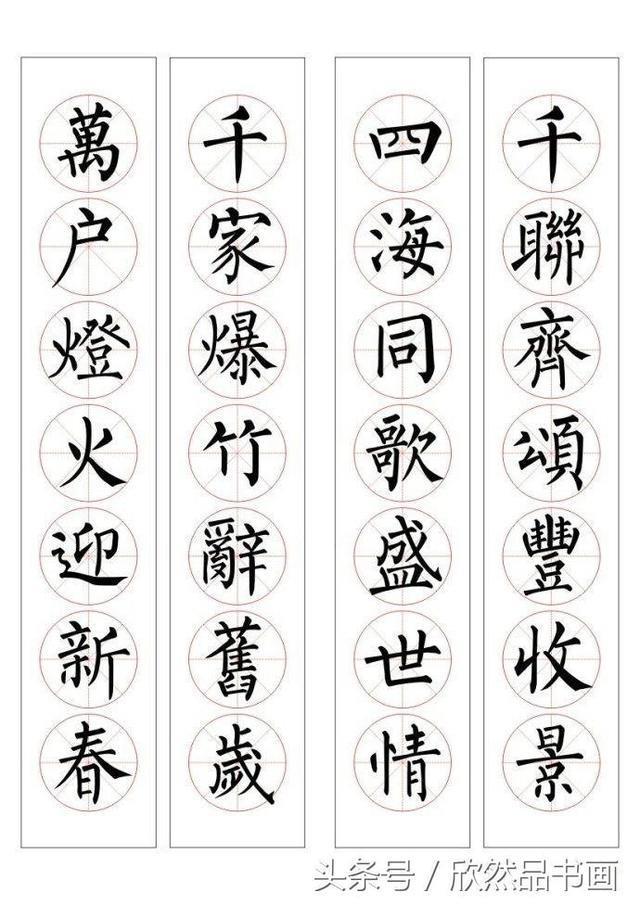 千聯齊頌豐收景
四海同歌盛世情
千家爆竹辭舊歲
萬户燈火迎新春
头条号 / 欣然品书画